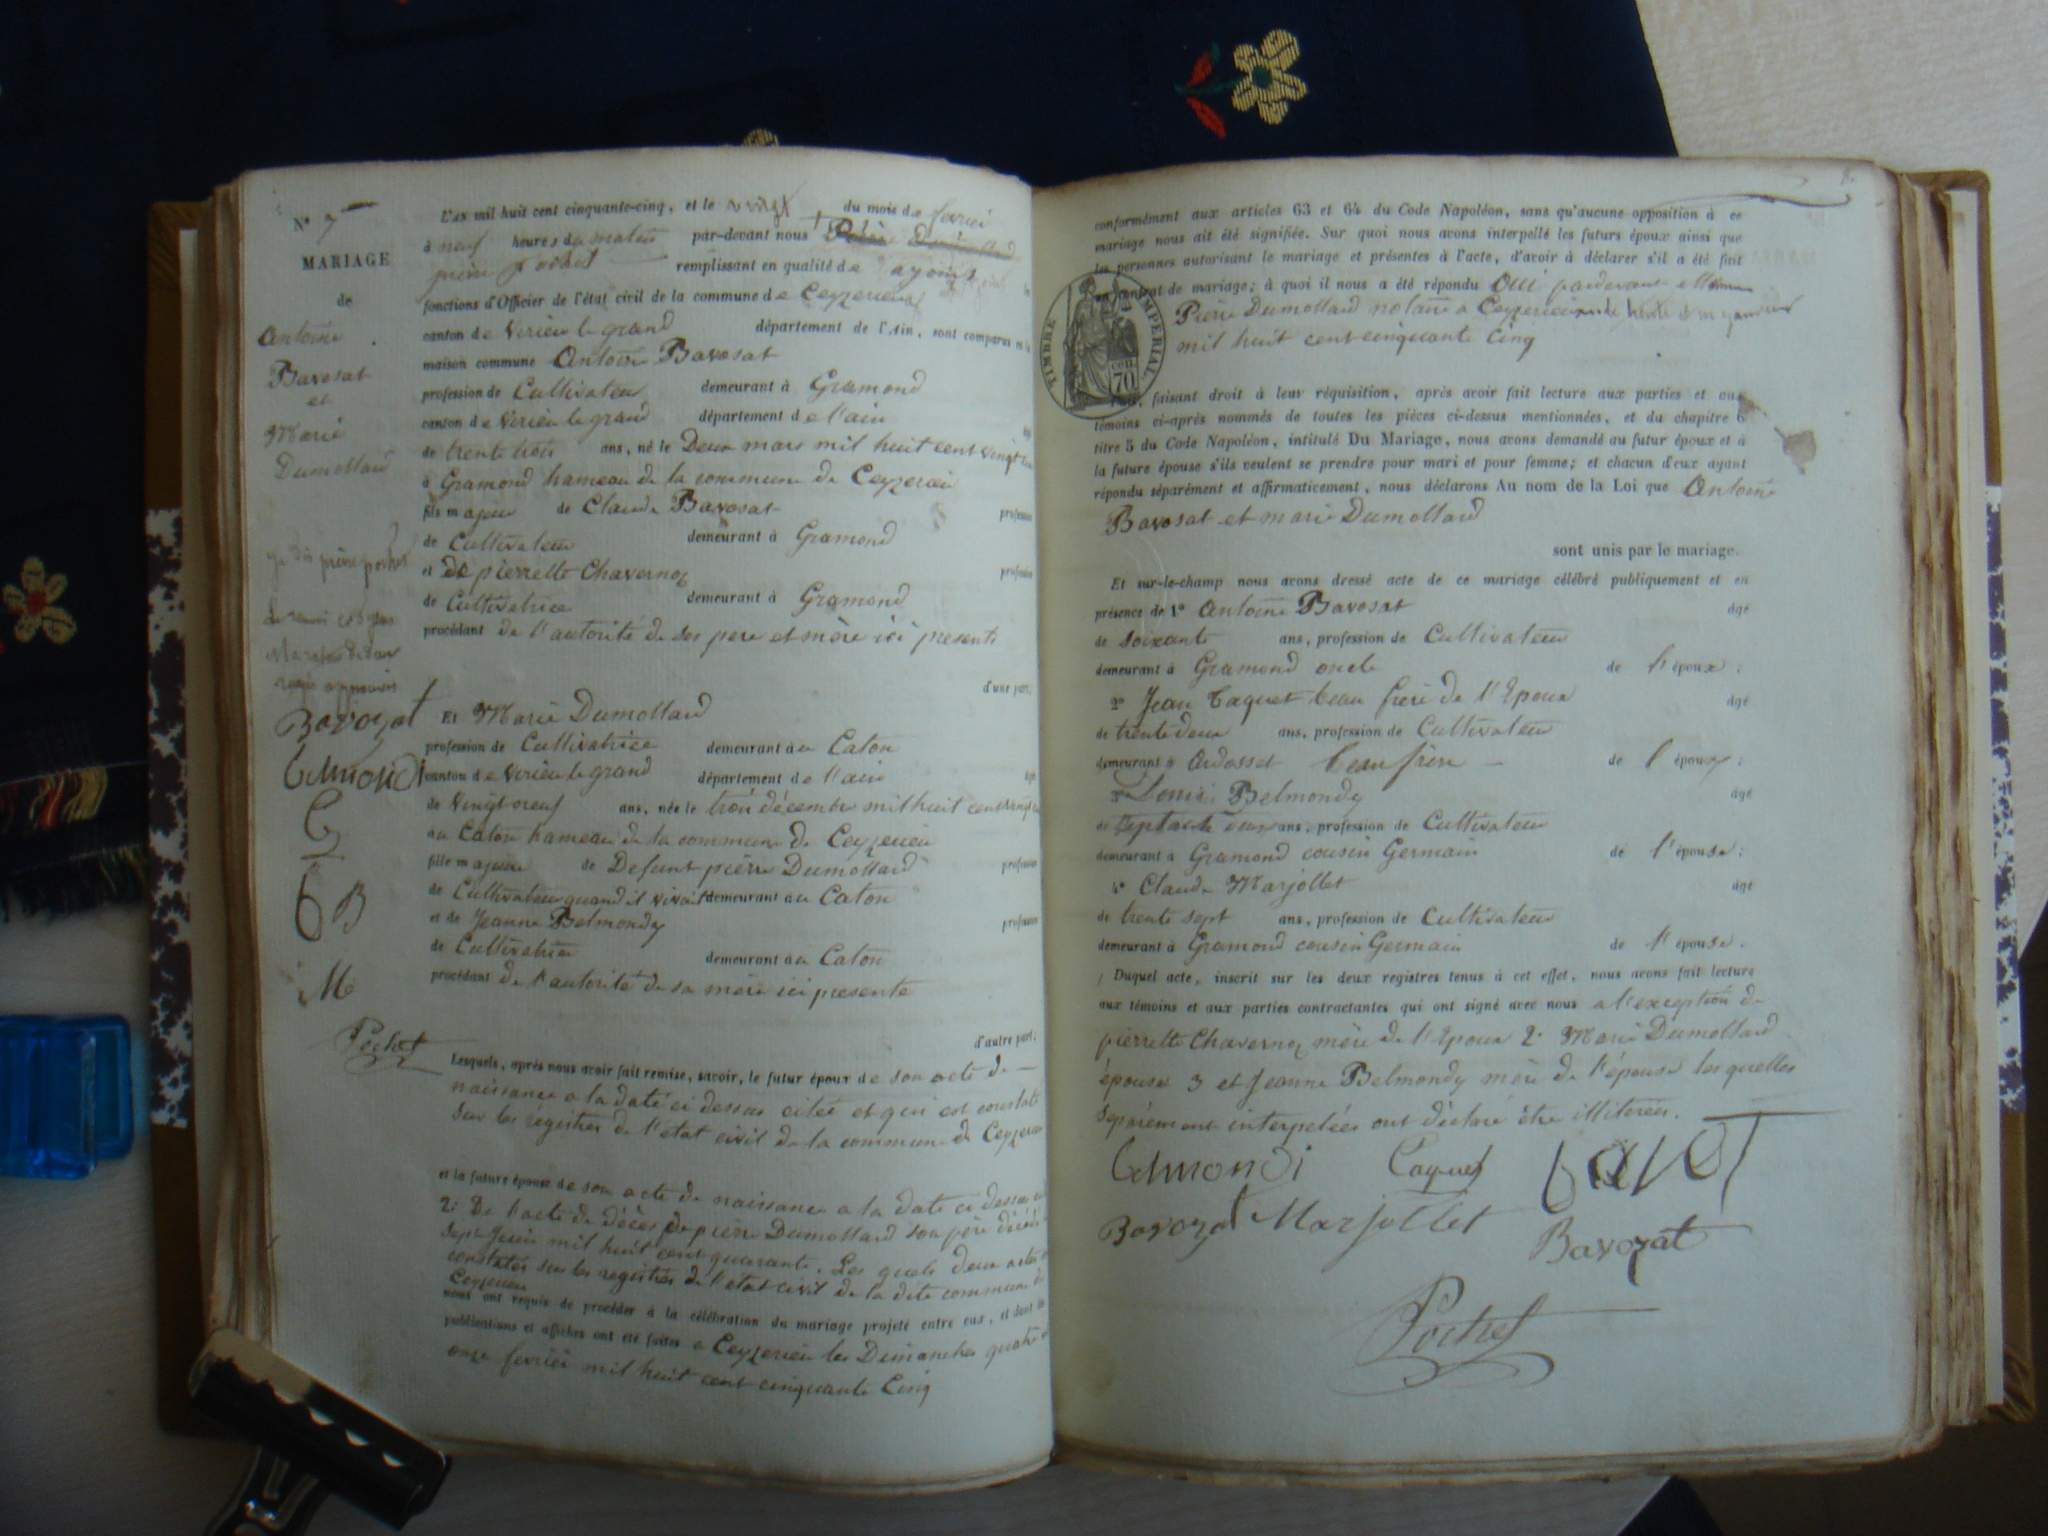 N° 7
MARIAGE
de
Antoine
Bavosat
et
Marie
Dumollard
L'an mil huit cent cinquante-cinq, et le vingt du mois de fevrier
à neuf heures du matin par-devant nous
pierre pochet remplissant en qualité de
fonctions d'Officier de l'état civil de la commune de Ceyzerieu
canton de Virieu le grand département de l'Ain, sont comparus en la
maison commune Antoine Bavosat
profession de Cultivateur demeurant à Gramond
canton de Virieu le grand département de l'ain
de trente trois ans, né le Deux mars mil huit cent vingt
à Gramond hameau de la commune de Ceyzerieu
fils majeur de Claude Bavosat profession
de Cultivateur demeurant à Gramond
et de pierrette Chavernoz profession
de Cultivatrice demeurant à Gramond
procédant de l'autorité de ses pere et mère ici presents
d'une part;
pierre pochet
Bavozat
Et Marie Dumollard
profession de Cultivatrice demeurant au Caton
canton de Virieu le grand département de l'ain
de Vingt neuf ans, née le trois décembre mil huit cent vingt
au Caton hameau de la commune de Ceyzerieu
fille majeure de Defunt pierre Dumollard profession
de Cultivateur quand il vivait demeurant au Caton
et de Jeanne Belmondy profession
de Cultivatrice demeurant au Caton
procédant de l'autorité de sa mère ici presente
d'autre part;
B
M
Pochet
Lesquels, après nous avoir fait remise, savoir, le futur époux de son acte de
naissance a la date ci dessus citée et qui est constaté
sur les régistres de l'état civil de la commune de Ceyzerieu
et la future épouse de son acte de naissance a la date ci dessus
2° De l'acte de décès de pierre Dumollard son père décédé
sept juin mil huit cent quarante. Les quels deux actes
constatés sur les registres de l'état civil de la dite commune de
Ceyzerieu
nous ont requis de procéder à la célébration du mariage projeté entre eux, et dont les
publications et affiches ont été faites a Ceyzerieu les Dimanches quatre et
onze fevrier mil huit cent cinquante Cinq
conformément aux articles 63 et 64 du Code Napoléon, sans qu'aucune opposition à ce
mariage nous ait été signifiée. Sur quoi nous avons interpellé les futurs époux ainsi que
les personnes autorisant le mariage et présentes à l'acte, d'avoir à déclarer s'il a été fait
un contrat de mariage; à quoi il nous a été répondu Oui pardevant
Pierre Dumollard notaire a Ceyzerieu
mil huit cent cinquante Cinq
TIMBRE IMPERIAL
70
faisant droit à leur réquisition, après avoir fait lecture aux parties et aux
témoins ci-après nommés de toutes les pièces ci-dessus mentionnées, et du chapitre 6
titre 5 du Code Napoléon, intitulé Du Mariage, nous avons demandé au futur époux et à
la future épouse s'ils veulent se prendre pour mari et pour femme; et chacun d'eux ayant
répondu séparément et affirmativement, nous déclarons Au nom de la Loi que Antoine
Bavosat et marie Dumollard
sont unis par le mariage.
Et sur-le-champ nous avons dressé acte de ce mariage célébré publiquement et en
présence de 1° Antoine Bavosat âgé
de soixante ans, profession de Cultivateur
demeurant à Gramond oncle de l'époux;
2° Jean Caquet beau frère de l'Epoux âgé
de trente deux ans, profession de Cultivateur
demeurant à Ardosset beau frère de l'époux;
3° Louis Belmondy âgé
ans, profession de Cultivateur
demeurant à Gramond cousin Germain de l'épouse;
4° Claude Marjollet âgé
de trente sept ans, profession de Cultivateur
demeurant à Gramond cousin Germain de l'épouse.
Duquel acte, inscrit sur les deux registres tenus à cet effet, nous avons fait lecture
aux témoins et aux parties contractantes qui ont signé avec nous a l'exception de
pierrette Chavernoz mère de l'Epoux 2° Marie Dumollard
épouse 3 et Jeanne Belmondy mère de l'épouse lesquelles
séparement interpelées ont déclaré être illiterées.
Caquet
Bavozat Marjollet
Bavozat
Pochet